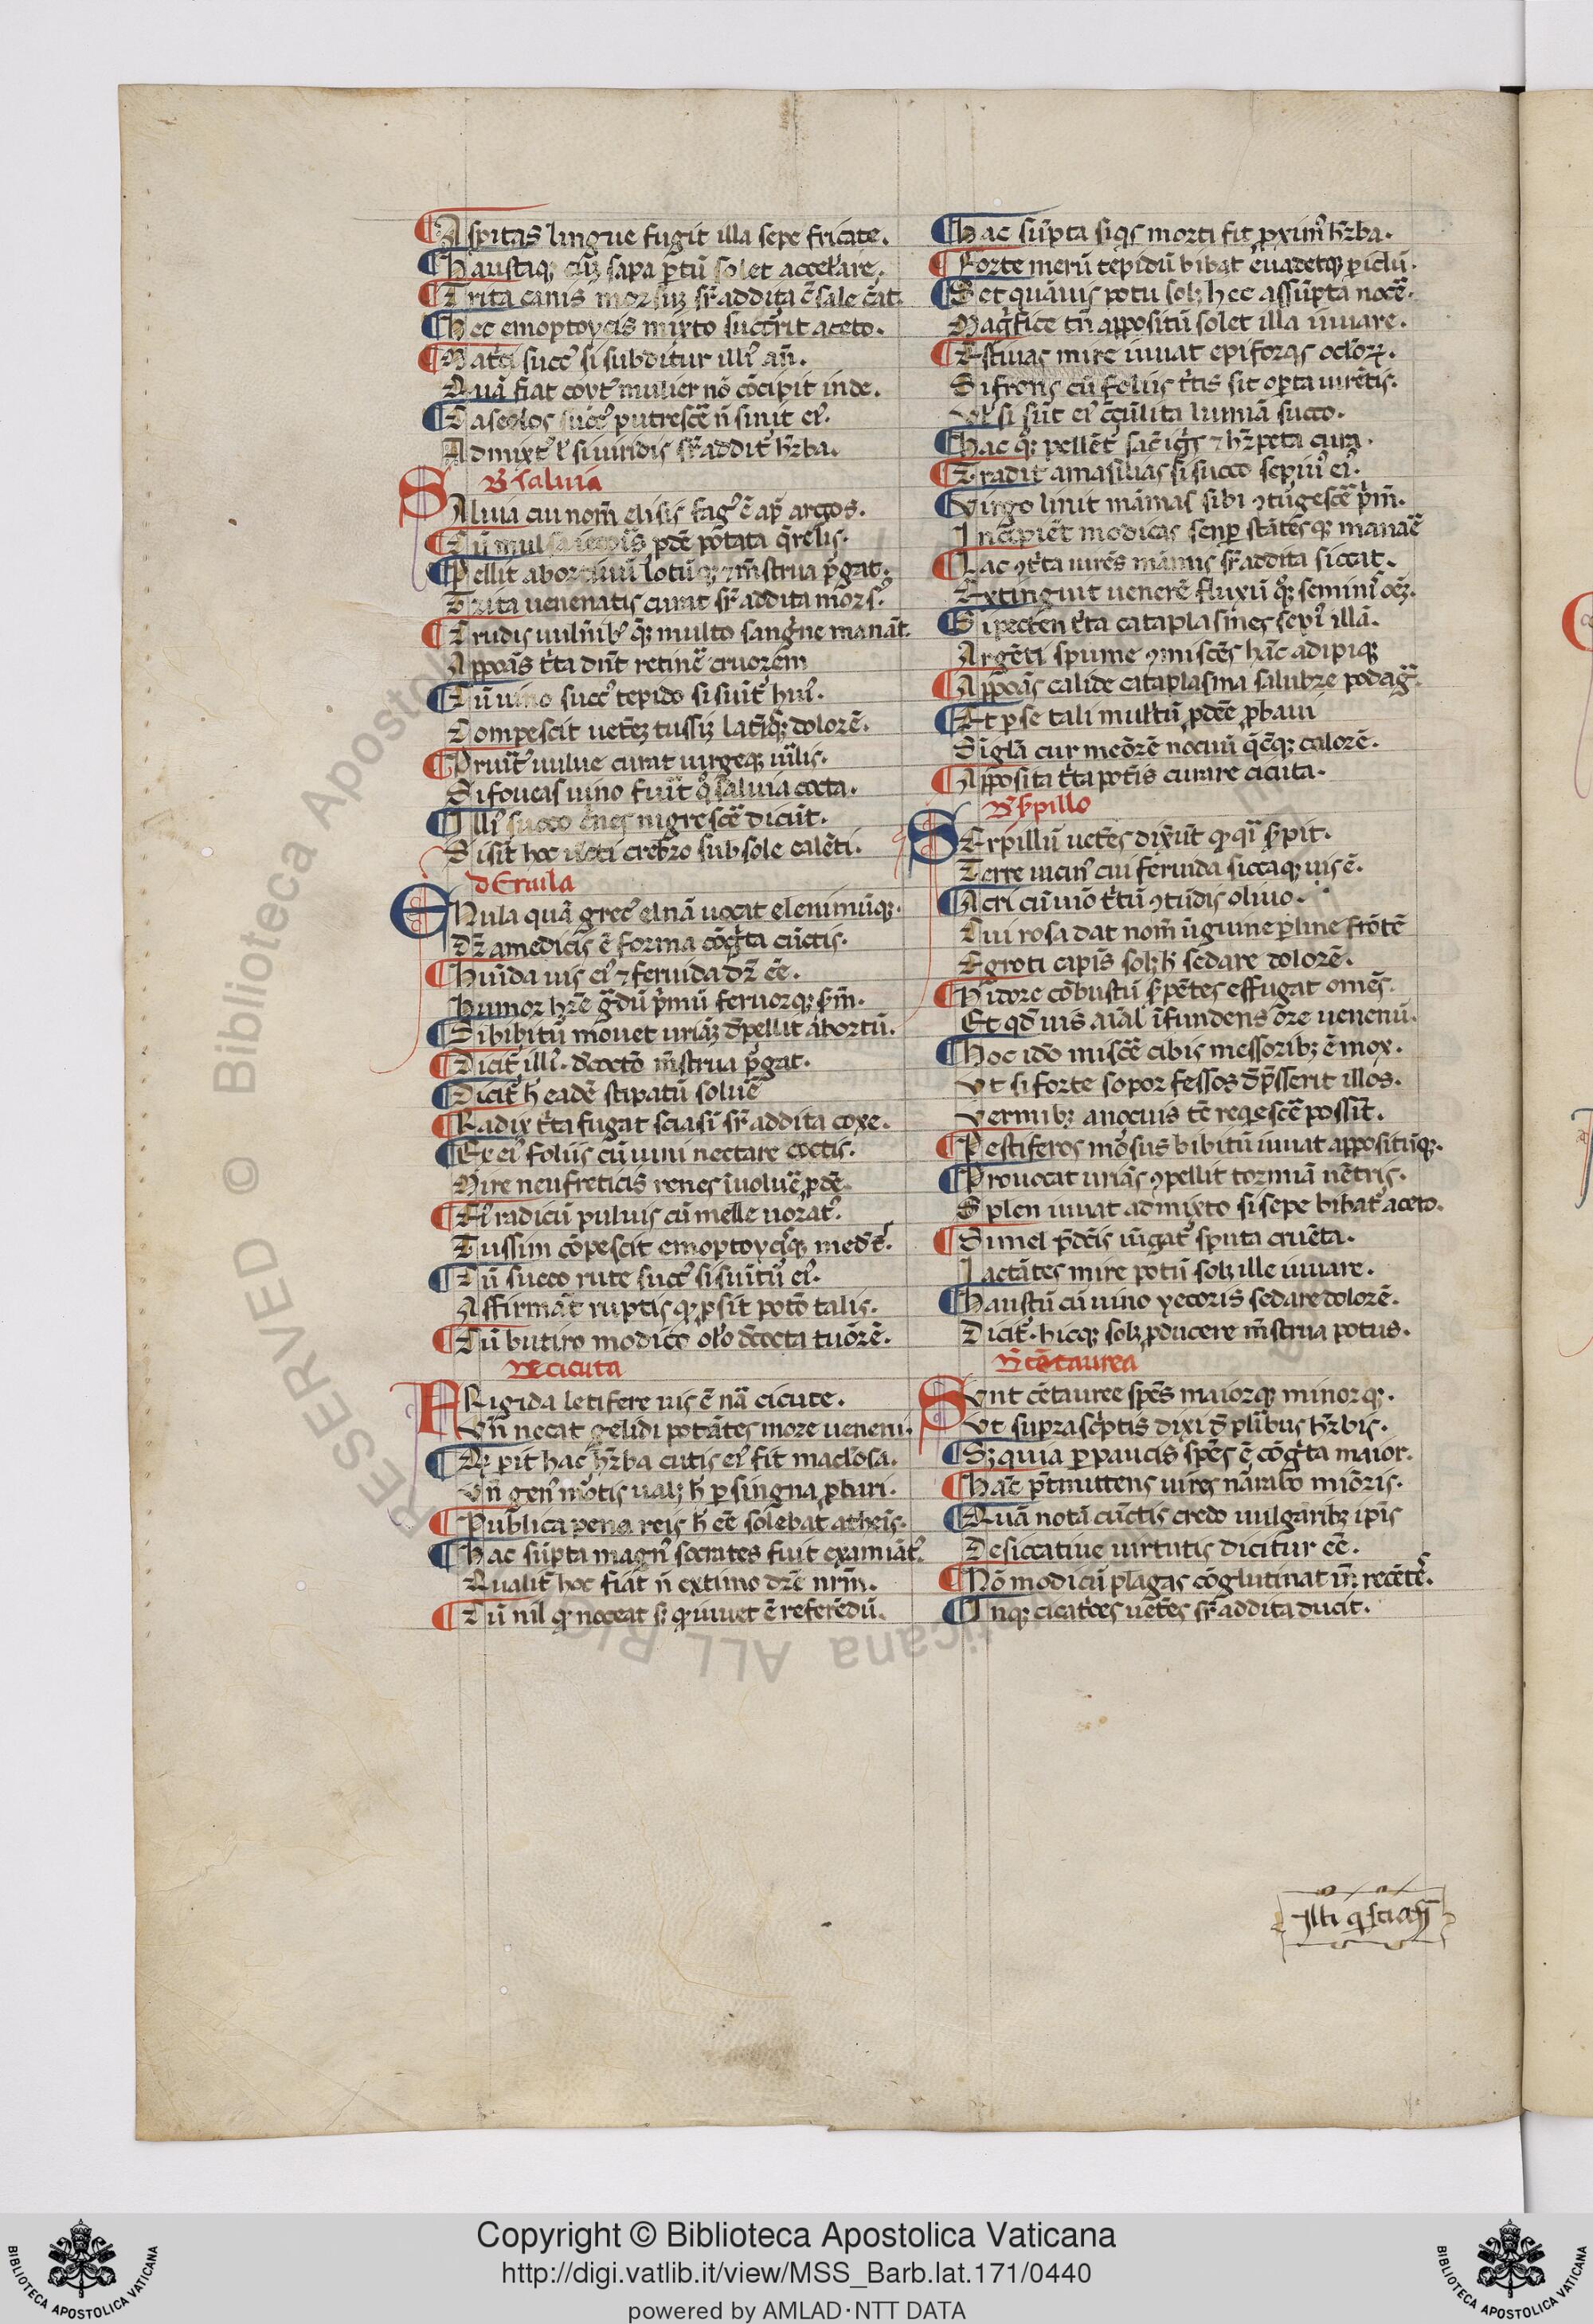 Aspitas lingue fugit illa sepe fricate.
Haustaq; cũ sapa ꝑtũ solet accelˀare.
Trita canis morsuz sr̃ addita c̃ sale c̃at.
Hec emoptoycis mixto succ̃rit aceto.
Mat̃ci succꝰ si subditur illiꝰ añ.
Quã fiat coytꝰ mulier nõ cõcipit inde.
succꝰ putrescẽ ñ sinit eiꝰ.
Admixtꝰ lˀ si uiridis sr̃ addit̃ hr̃ba.
saluia
Saluia cui nom̃ elisis fagꝰ ẽ ap̃ argos.
Cũ mulsa iecoris ꝓdẽ põtata q̃relis.
Pellit aborsiuũ lotuq; ⁊ mẽstrua p̃gat.
Trita uenenatis curat sr̃ addita morsꝰ.
Crudis uuln̾ib; q̃; multo sang̾ne manãt.
Appoãs t̾ta dñt retinẽ cruorem
Cũ uino succꝰ tepido si sũit̾ huiꝰ.
Compescit uetẽz tussiz lat̾isq; dolorẽ.
Pruit̾ uulue curat uirgeq; uĩlis.
Si foueas uino fuĩt q̃ saluia cocta.
Illiꝰ succo c̾nes nigrescẽ dicũt.
Si sit hoc ũcti crebro sub sole calẽti.
d Enula
Enula quã grecꝰ elnã uocat eleniumq;.
Dr̃ a medicis ẽ forma cõg̾ta cũctis.
Humida uis eiꝰ ⁊ feruida dr̃ eẽ.
Humor hr̃e g̃dũ p̾mũ feruorq; sm̃.
Si bibitũ mouet uriã; dp̃ellit abortũ.
Dicit̾ illiꝰ. decoctõ mẽstrua p̃gat.
Dicit̾ h̾ eadẽ stipatũ soluẽ
Radix t̾ta fugat sciasĩ sr̃ addita coxe.
Et eiꝰ foliis cũ uini nectare coctis.
Mire neufreticis renes ĩuoluẽ ꝓdẽ.
Eiꝰ radicũ puluis cũ melle uoratꝰ.
Tussim cõpescit emoptoycisq; med̾t̾.
Cũ succo rute succꝰ si sũitũ eiꝰ.
Affirmãt ruptis q; ꝓsit potõ talis.
Cũ butiro modico olˀo dc̾octa tuõrẽ.
De cicuta
Frigida letifere uis ẽ nã cicute.
Vñ necat gelidi potãtes more ueneni.
Qˀ ꝑit hac hr̃ba cutis eiꝰ fit maclˀosa.
Vñ genꝰ mõtis ual; h̾ ꝑ singna ꝓbari.
Publica pena reis h̾ eẽ solebat atheĩs.
Hac sũpta magnꝰ socrates fuit examiãtꝰ.
Qualit̾ hoc fiat ñ extimo dr̃e nr̃m.
Cũ nil q; noceat s; q; iuuet ẽ referẽdũ.
Hac sũpta siq̾s morti fit ꝓximꝰ hr̃ba.
Forte merũ tepidũ bibat euadetq; ꝑiclũ.
Set quãuis potu sol; hec assũpta nocẽ.
Mag̾fice tñ appositũ solet illa iuuare.
Estiuas mire iuuat epiforas oclˀorꝝ.
Si frons cũ foliis t̾tis sit oꝑta uirẽtis.
Vlˀ si sũt eiꝰ ĉcũlita lumiã succo.
Hac q̃; pellẽt̾ sac̾ ig̾s ⁊ hr̃peta cura.
Tradit̾ amasilias si succo sepiuꝰ eiꝰ.
Virgo linit mãmas sibi ꝯtũgescẽ p̾m̃.
Incipiẽt modicas senp stãtesq; manẽ
Lac ꝯt̾ta uirẽs mãmis sr̃ addita siccat.
Extinguit uenerẽ fluxũ q̃; seminiꝰ oẽ;.
Si pecten t̾ta cataplasmes sepiꝰ illã.
Argẽti spume ꝯmiscẽs hãc adipiq;
Appoãs calide cataplasma salubre podag̃.
Et ꝑ se tali multũ ꝓdẽe ꝓbaui
Sĩglã cur meõrẽ nociuũ q̃cq; calorẽ.
Apposita t̾ta potĩs curare cicuta.
Srpillo
Serpillũ uetẽs dixẽt q; quĩ srpit.
Terre uicinꝰ cui feruida siccaq; uis ẽ.
Acri cũ uĩo t̾tũ ꝯtũdis oliuo.
Cui rosa dat nom̃ ũguine ꝑline frõtẽ
Egroti capis̃ sol; h̾ sedare dolorẽ.
Nidore cõbustũ srpẽtes effugat omẽs.
Et qd̾ uis aĩal ĩfundens ore uenenũ.
Hoc ido miscẽ cibis messorib; ẽ mox.
Vt si forte sopor fessos dp̃sserit illos.
Vermib; a nocuis tc̃ reqescẽ possĩt.
Pestiferos mõsus bibitũ iuuat appositũq;.
Prouocat uriãs ꝯpellit tormiã uẽtris.
Splen iuuat admixto si sepe bibat̾ aceto.
Simel p̾dc̃is iũgat̾ sputa cruẽta.
Iactãtes mire potũ sol; ille iuuare.
Haustũ cũ uino yecoris sedare dolorẽ.
Dicit̾. hicq; sol; ꝓducere mẽstrua potus.
De cẽtaurea
Sunt cẽtauree spẽs maiorq; minorq;.
Vt suprasc̾ptis dixi d̾ plĩbus hr̃bis.
S; quia ꝑpaucis spẽs ẽ cõg̾ta maior.
Hãc p̾tmittens uires nãrabo miõris.
Quã notã cũctis credo uulgarib; ip̃is
Desiccatiue uirtutis dicitur eẽ.
Nõ modicũ plagas cõglutinat ĩm̃ recẽtẽ.
Inq; cicat̾ces uẽtẽs sr̃ addita ducit.
Copyright © Biblioteca Apostolica Vaticana
http://digi.vatlib.it/view/MSS_Barb.lat.171/0440
powered by AMLAD·NTT DATA
BIBLIOTECA APOSTOLICA VATICANA
BIBLIOTECA APOSTOLICA VATICANA